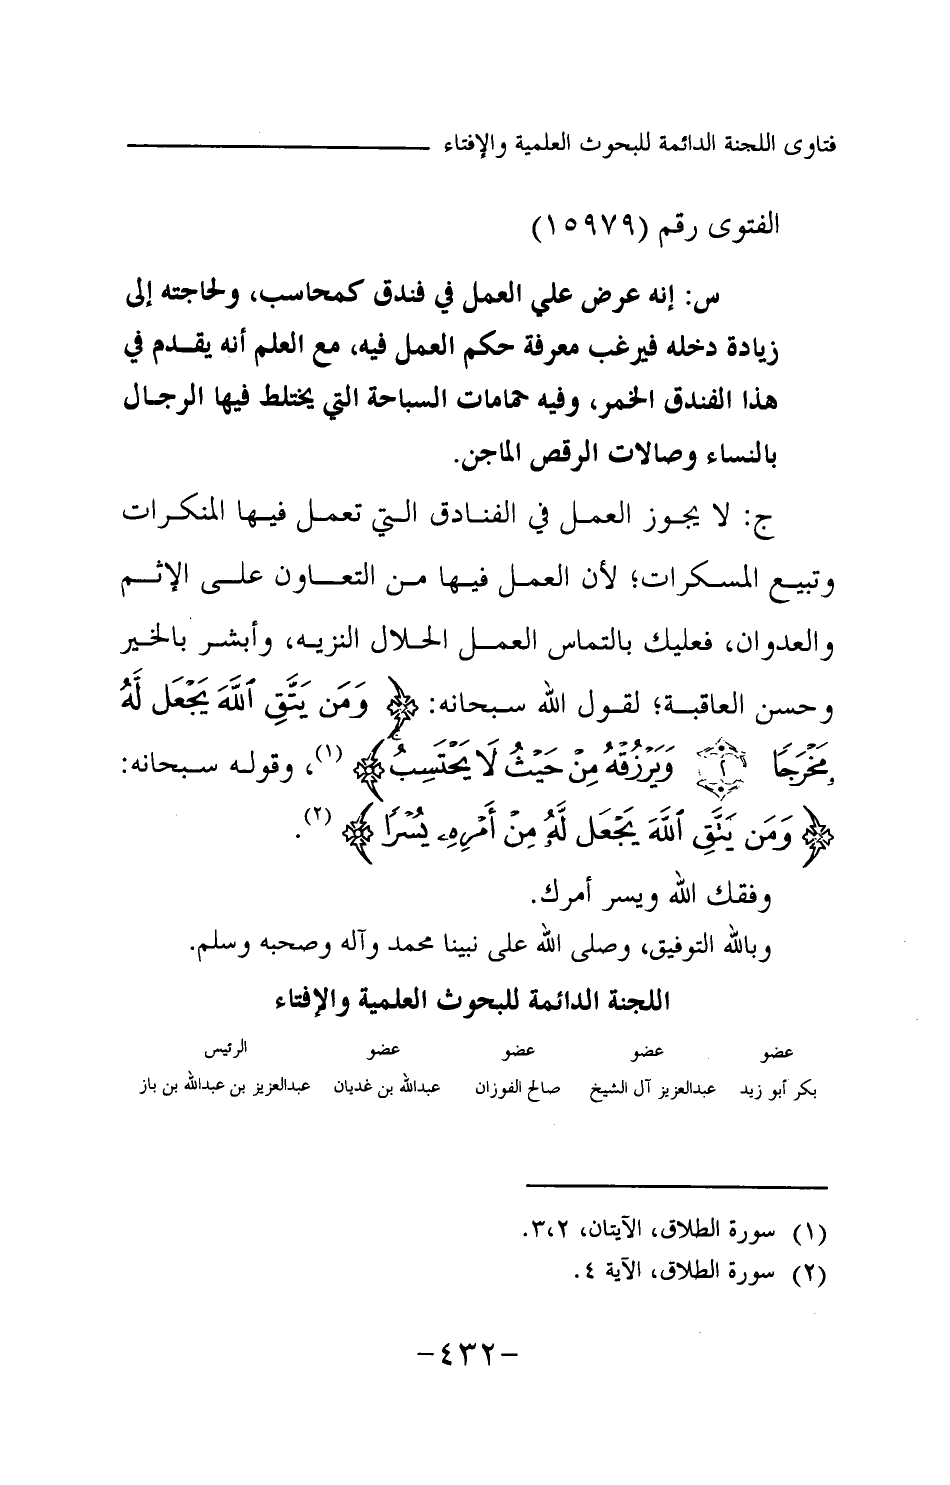 فتاوى اللجنة الدائمة للبحوث العلمية والإفتاء
الفتوى رقم (١٥٩٧٩)
س: إنه عرض علي العمل في فندق كمحاسب، ولحاجته إلى
زيادة دخله فيرغب معرفة حكم العمل فيه، مع العلم أنه يقـدم في
هذا الفندق الخمر، وفيه حمامات السباحة التي يختلط فيها الرجـال
بالنساء وصالات الرقص الماجن.
ج: لا يجـوز العمـل في الفنـادق الـتي تعمـل فيـها المنكـرات
وتبيـع المسـكرات؛ لأن العمـل فيـها مـن التعـاون علـى الإثـم
والعدوان، فعليك بالتماس العمـل الحلال النزيـه، وأبشـر بالخير
وحسن العاقبـة؛ لقـول الله سـبحانه: ﴿ وَمَن يَتَّقِ ٱللَّهَ يَجْعَل لَّهُ
مَخْرَجًا ۝٢ وَيَرْزُقْهُ مِنْ حَيْثُ لَا يَحْتَسِبُ ﴾ (١)، وقولـه سـبحانه:
﴿ وَمَن يَتَّقِ ٱللَّهَ يَجْعَل لَّهُۥ مِنْ أَمْرِهِۦ يُسْرًا ﴾ (٢).
وفقك الله ويسر أمرك.
وبالله التوفيق، وصلى الله على نبينا محمد وآله وصحبه وسلم.
اللجنة الدائمة للبحوث العلمية والإفتاء
عضو عضو عضو عضو الرئيس
بكر أبو زيد عبدالعزيز آل الشيخ صالح الفوزان عبدالله بن غديان عبدالعزيز بن عبدالله بن باز
(١) سورة الطلاق، الآيتان، ٣،٢.
(٢) سورة الطلاق، الآية ٤.
-٤٣٢-